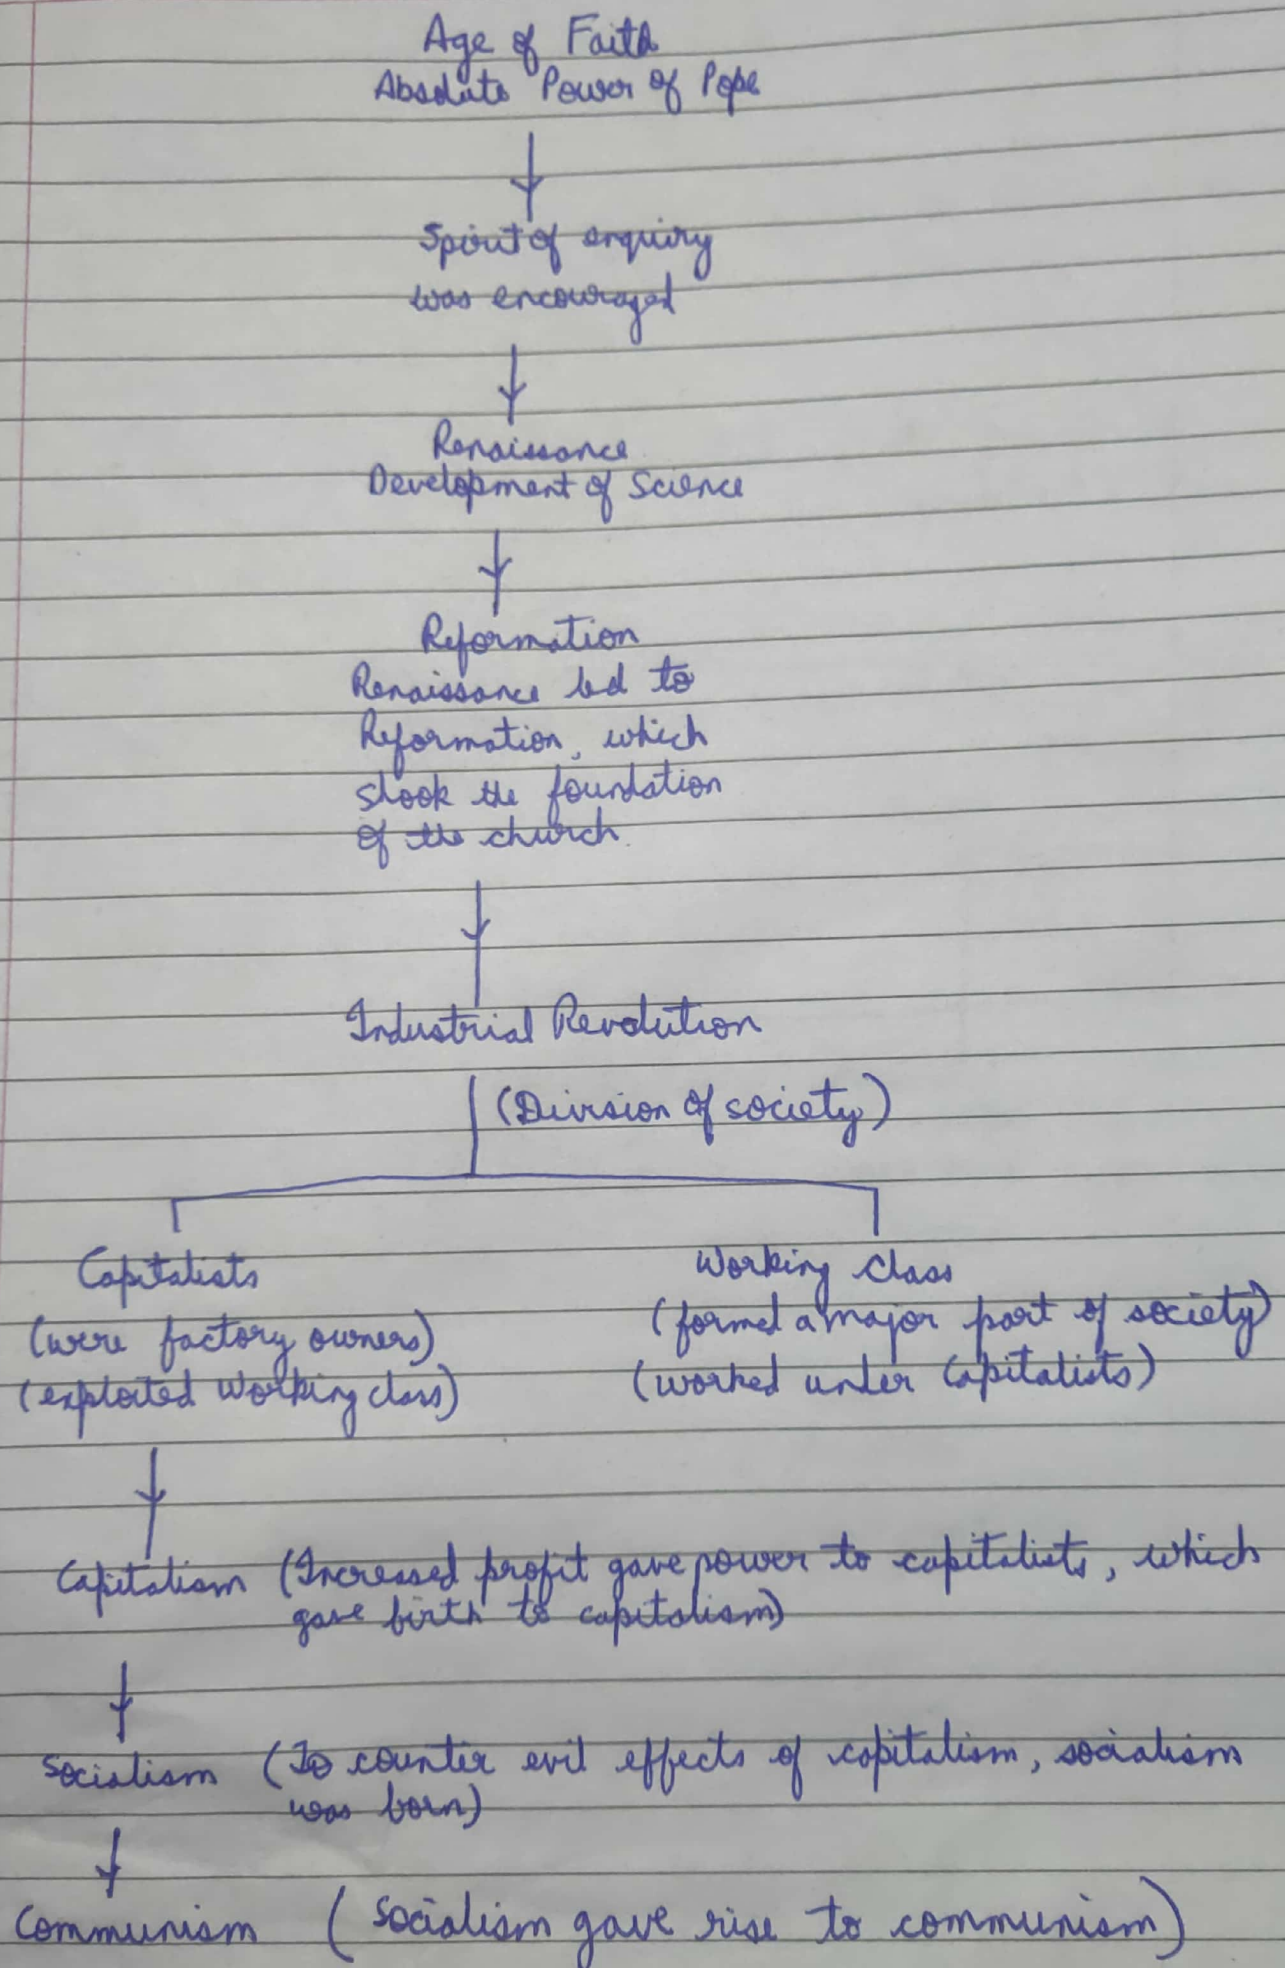 Age of Faith
Absolute Power of Pope
Spirit of enquiry
was encouraged
Renaissance
Development of Science
Reformation
Renaissance led to
Reformation, which
shook the foundation
of the church.
Industrial Revolution
(Division of society)
Capitalists
(were factory owners)
(exploited working class)
Working class
(formed a major part of society)
(worked under capitalists)
Capitalism (Increased profit gave power to capitalists, which
gave birth to capitalism)
Socialism (To counter evil effects of capitalism, socialism
was born)
Communism (Socialism gave rise to communism)